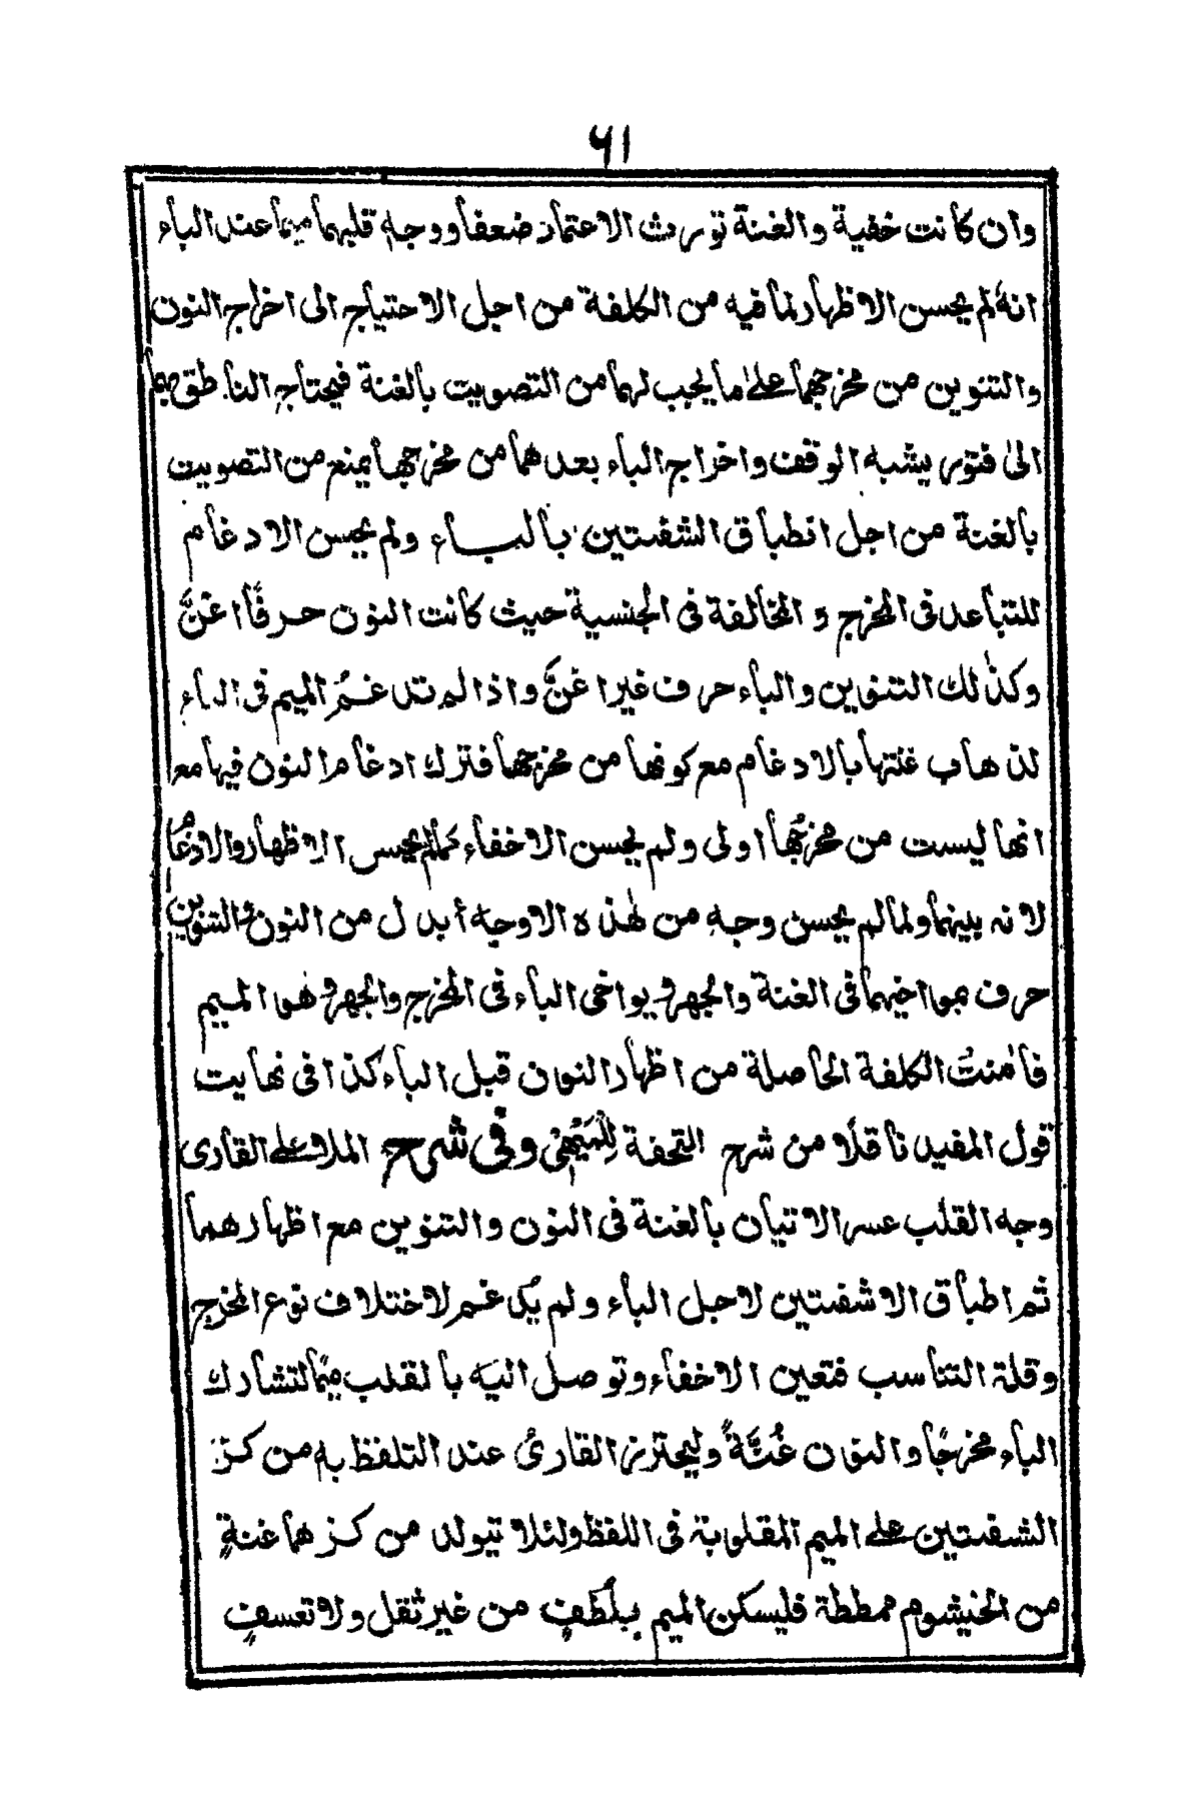 ٦١
وان كانت خفية والغنة تورث الاعتماد ضعفا ووجه قلبهما ميما عند الباء
انهٗ لم يحسن الاظهار لما فيه من الكلفة من اجل الاحتياج الى اخراج النون
والتنوين من مخرجهما علىٰ ما يجب لهما من التصويت بالغنة فيحتاج الناطق بهما
الىٰ فتور يشبه الوقف واخراج الباء بعدهما من مخرجها يمنع من التصويت
بالغنة من اجل انطباق الشفتين بالباء ولم يحسن الادغام
للتباعد فى المخرج و المخالفة فى الجنسية حيث كانت النون حرفًا اغنَّ
وكذٰلك التنوين والباء حرف غير اغنَّ واذا لم تدغم الميم فى الباء
لذهاب غنتها بالادغام مع كونها من مخرجها فترك ادغام النون فيها مع
انها ليست من مخرجها اولى ولم يحسن الاخفاء كما لم يحسن الاظهار والادغام
لانه بينهما ولما لم يحسن وجه من هٰذه الاوجه أبدل من النون والتنوين
حرف يواخيهما فى الغنة والجهر ويواخى الباء فى المخرج والجهر وهو الميم
فأمنت الكلفة الحاصلة من اظهار النون قبل الباء كذا فى نهايت
قول المفيد ناقلًا من شرح التحفة لِلْمَيْهِىْ وفى شرح الملا على القارى
وجه القلب عسر الاتيان بالغنة فى النون والتنوين مع اظهارهما
ثم اطباق الاشفتين لاجل الباء ولم يُدغم لاختلاف نوع المخرج
وقلة التناسب فتعين الاخفاء وتوصل اليه بالقلب ميمًا لتشارك
الباء مخرجًا والنون غُنَّةً وليحترز القارئ عند التلفظ به من كز
الشفتين على الميم المقلوبة فى اللفظ ولئلا تيولد من كزهما غنةٍ
من الخيشوم ممططة فليسكن الميم بِلُطْفٍ من غير ثقل ولا تعسفٍ